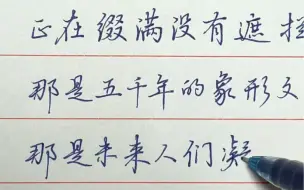 正在缀满没有遮拦
那是五千年的象形文
那是未来人们凝